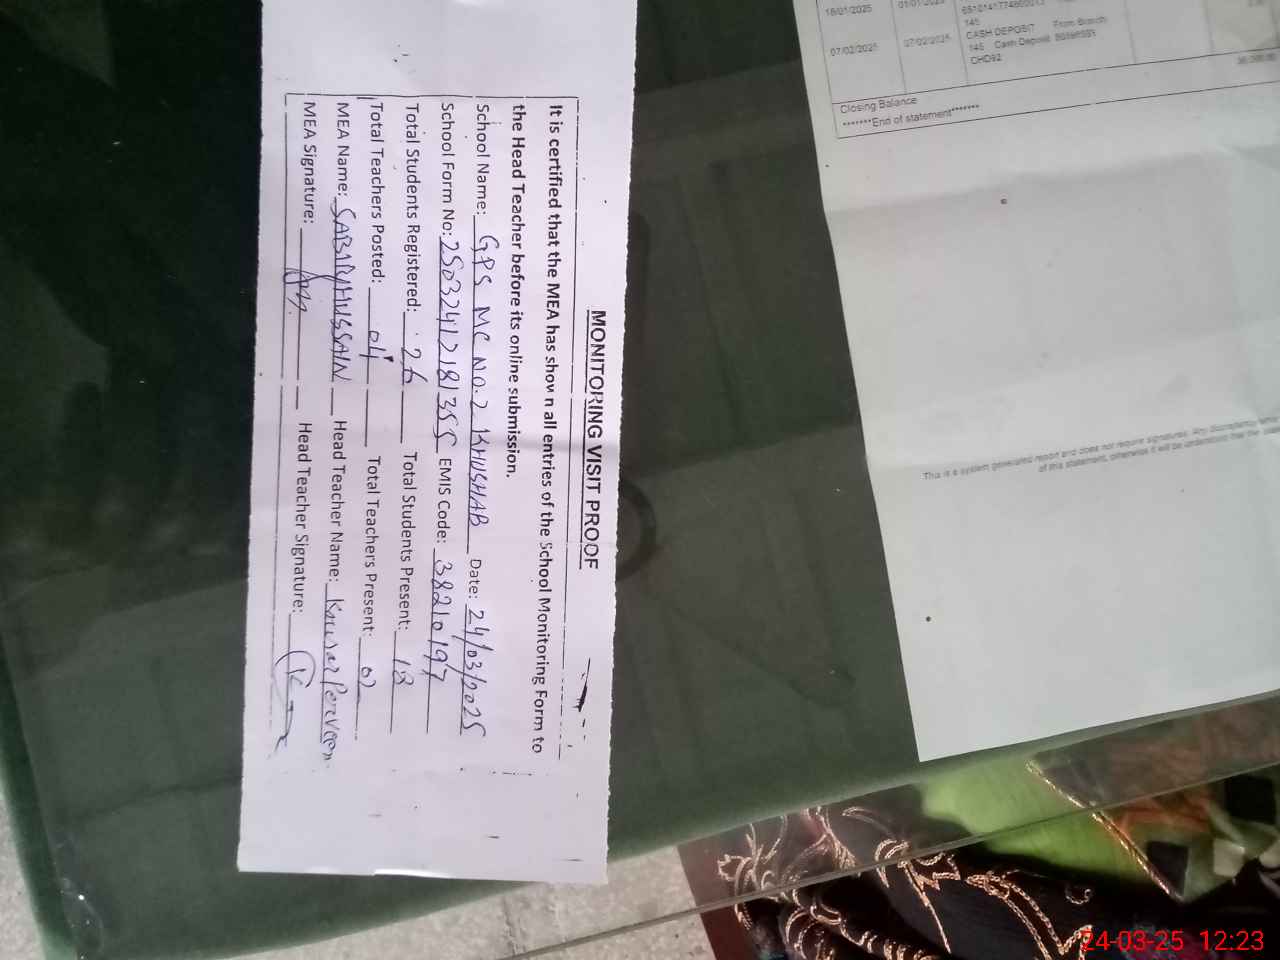 MONITORING VISIT PROOF
It is certified that the MEA has shown all entries of the School Monitoring Form to
the Head Teacher before its online submission.
School Name: GPS MC NO.2 KHUSHAB Date: 24/03/2025
School Form No: 25032412181355 EMIS Code: 38210197
Total Students Registered: 26 Total Students Present: 18
Total Teachers Posted: 04 Total Teachers Present: 02
MEA Name: SABIR HUSSAIN Head Teacher Name: Kousar Perveen
MEA Signature: Head Teacher Signature:
18/01/2025 01/01/2025
145
07/02/2025 07/02/2025 CASH DEPOSIT From Branch
145 Cash Deposit
CHD92
Closing Balance
*******End of statement*******
This is a system generated report and does not require signatures. Any discrepancy
of this statement, otherwise it will be understood that the
24-03-25 12:23